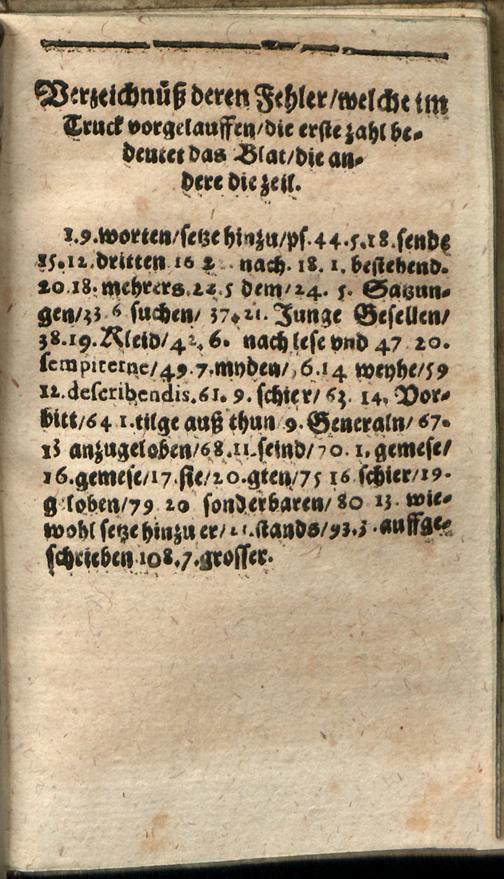 Verzeichnüß deren Fehler/welche im
Truck vorgelauffen/die erste zahl be-
deutet das Blat/die an-
dere die zeil.
1.9.worten/setze hinzu/ps.44.5.18.sende
15.12.dritten 16 2 nach. 18. 1. bestehend.
20.18. mehrers.22.5 dem/24. 5. Satzun-
gen/33 6 suchen/ 37.21. Junge Gesellen/
38.19.Kleid/42.6. nach lese vnd 47 20.
sempiterne/49.7.mnden/ 6.14 weyhe/59
12.describendis.61. 9. schier/ 63. 14. Vor-
bitt/64 1.tilge auß thun 9. Generaln/ 67.
13 anzugeloben/68.11.seind/70.1.gemese/
16.gemese/17.sie/20.gten/75 16 schier/19.
g loben/79 20 sonderbaren/ 80 13. wie-
wohl setze hinzu er/21.stands/93.3.auffge-
schrieben 108.7.grosser.